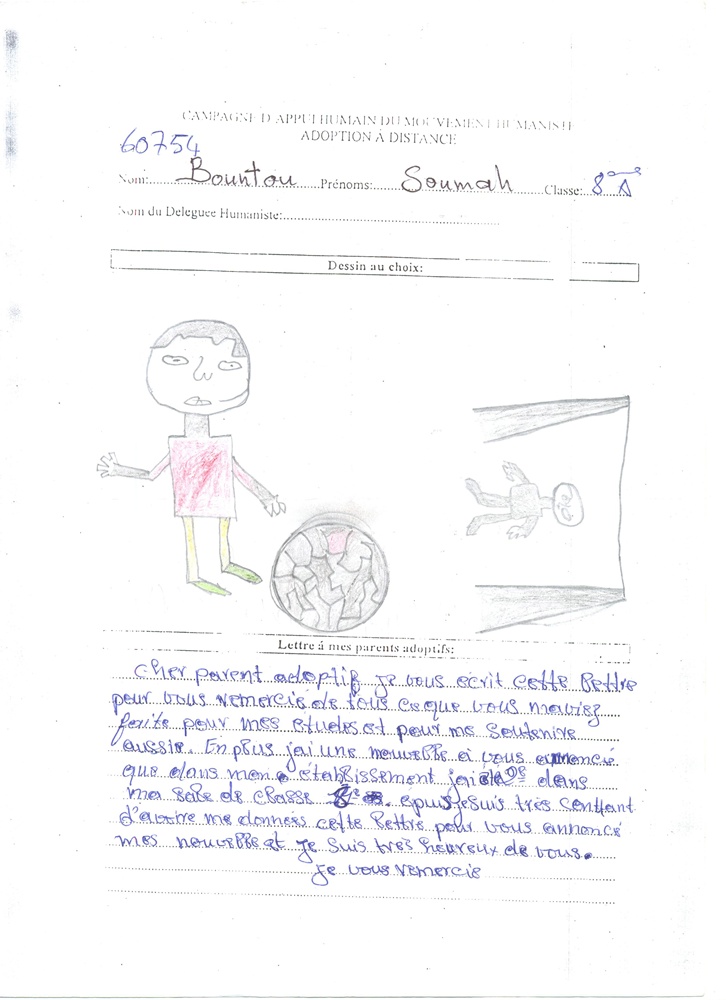 CAMPAGNE D'APPUI HUMAIN DU MOUVEMENT HUMANISTE
ADOPTION À DISTANCE
60754
Nom: Bountou Prénoms: Soumah Classe: 8ème A
Nom du Deleguee Humaniste:
Dessin au choix:
Lettre á mes parents adoptifs:
cher parent adoptif je vous ecrit cette lettre
pour vous remercié de tous ce que vous m'aviez
faite pour mes etudes et pour me soutenire
aussie. En plus j'ai une nouvelle a vous annoncé
que dans mon établissement j'ai dans
ma salle de classe épuis je suis très contant
d'avoire me donnees cette lettre pour vous annoncé
mes nouvelle et je suis très heureux de vous.
je vous remercie